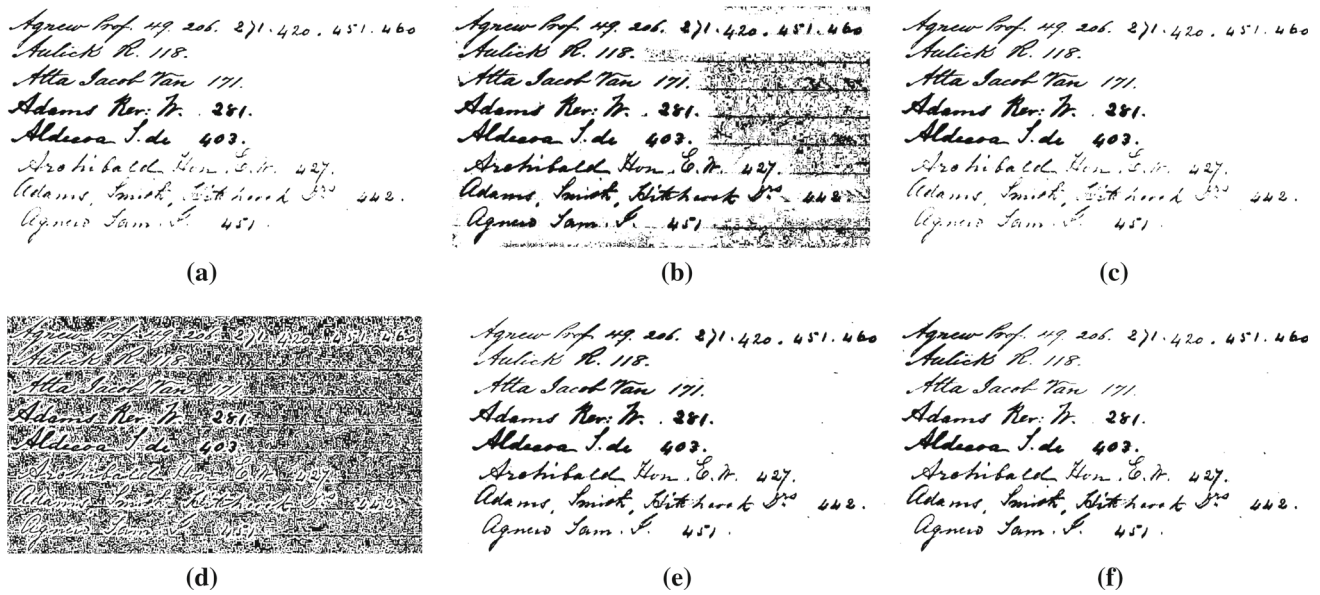 Agnew Prof. 49. 206. 271. 420. 451. 460
Aulick R. 118.
Atta Jacob Van 171.
Adams Rev: W. . 281.
Aldecoa J. de 403.
Archibald Hon. E. W. 427.
Adams, Smith, Hitchcock Drs 442.
Agnew Sam. G. 451.
(a)
Agnew Prof. 49. 206. 271. 420. 451. 460
Aulick R. 118.
Atta Jacob Van 171.
Adams Rev: W. . 281.
Aldecoa J. de 403.
Archibald Hon. E. W. 427.
Adams, Smith, Hitchcock Drs 442.
Agnew Sam. G. 451
(b)
Agnew Prof. 49. 206. 271. 420. 451. 460
Aulick R. 118.
Atta Jacob Van 171.
Adams Rev: W. . 281.
Aldecoa J. de 403.
Archibald Hon. E. W. 427.
Adams, Smith, Hitchcock Drs 442.
Agnew Sam. G. 451.
(c)
Agnew Prof. 49. 206. 271. 420. 451. 460
Aulick R. 118.
Atta Jacob Van 171.
Adams Rev. W. 281.
Aldecoa J. de 403.
Archibald Hon. E. W. 427.
Adams, Smith, Hitchcock Drs 442.
Agnew Sam. G. 451.
(d)
Agnew Prof. 49. 206. 271. 420. 451. 460
Aulick R. 118.
Atta Jacob Van 171.
Adams Rev: W. . 281.
Aldecoa J. de 403.
Archibald Hon. E. W. 427.
Adams, Smith, Hitchcock Drs 442.
Agnew Sam. G. 451.
(e)
Agnew Prof. 49. 206. 271. 420. 451. 460
Aulick R. 118.
Atta Jacob Van 171.
Adams Rev: W. . 281.
Aldecoa J. de 403.
Archibald Hon. E. W. 427.
Adams, Smith, Hitchcock Drs 442.
Agnew Sam. G. 451.
(f)